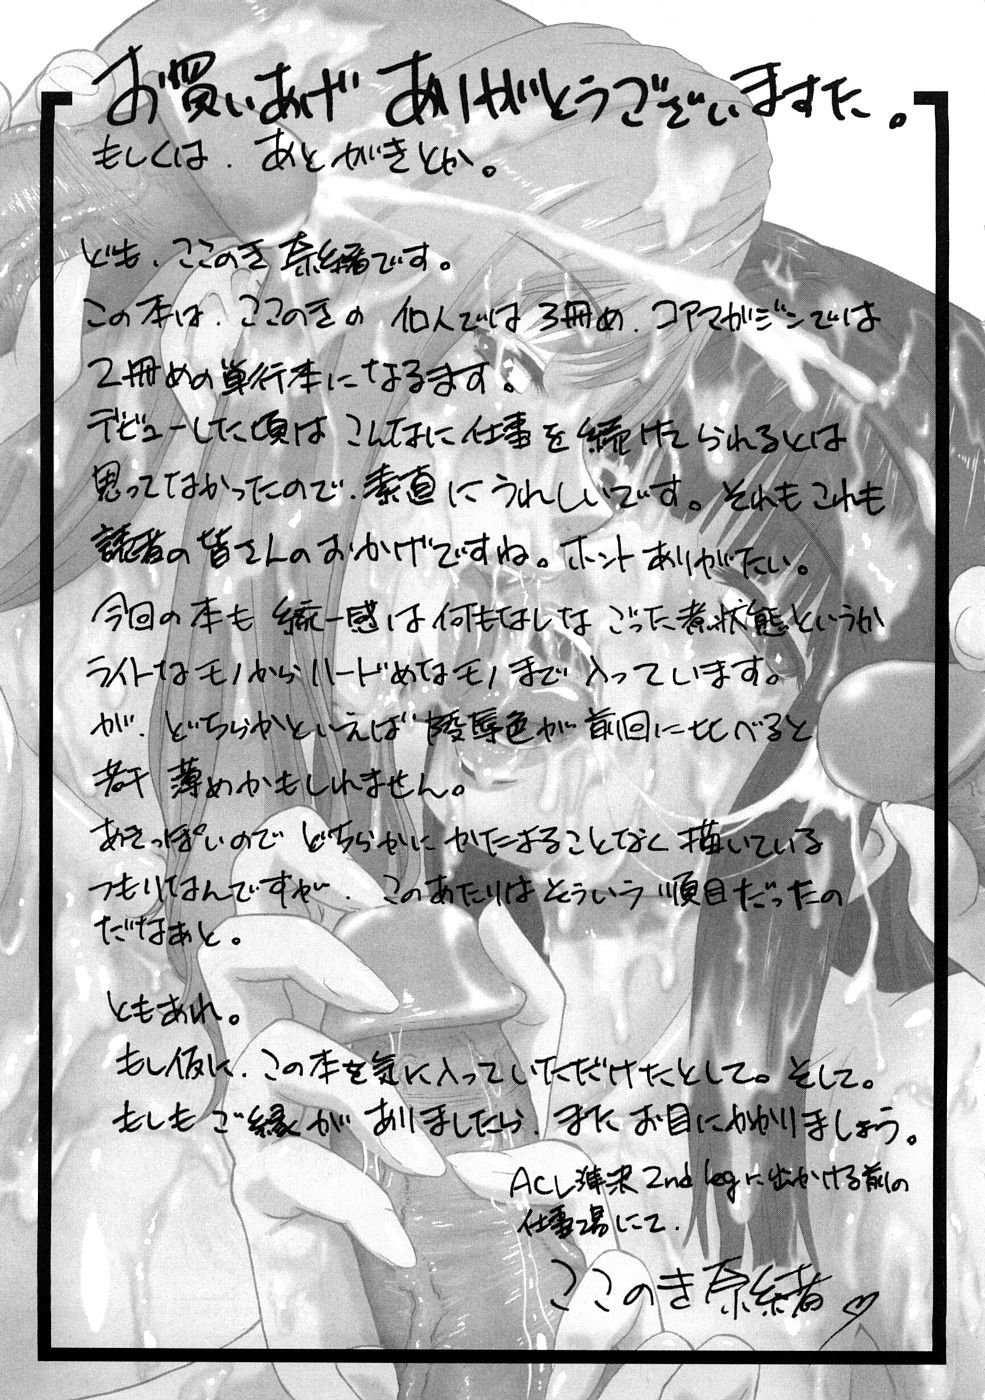 お買いあげ ありがとうございますた。
もしくは、あとがきとか。
ども、ここのき奈緒です。
この本は、ここのきの個人では3冊め、コアマガジンでは
2冊めの単行本になるます。
デビューした頃はこんなに仕事を続けてられるとは
思ってなかったので、素直にうれしいです。それもこれも
読者の皆さんのおかげですね。ホントありがたい。
今回の本も統一感は何もはしな ごった煮状態というか
ライトなモノからハードめなモノまで入っています。
が、どちらかといえば陵辱色が前回に比べると
若干薄めかもしれません。
あきっぽいので どちらかにかたまることなく描いている
つもりなんですが、このあたりはそういう順目だったの
だなぁと。
ともあれ。
もし仮に、この本を気に入っていただけたとして。そして。
もしもご縁がありましたら、またお目にかかりましょう。
ACL 2nd legに出かける前の
仕事場にて、
ここのき奈緒♡